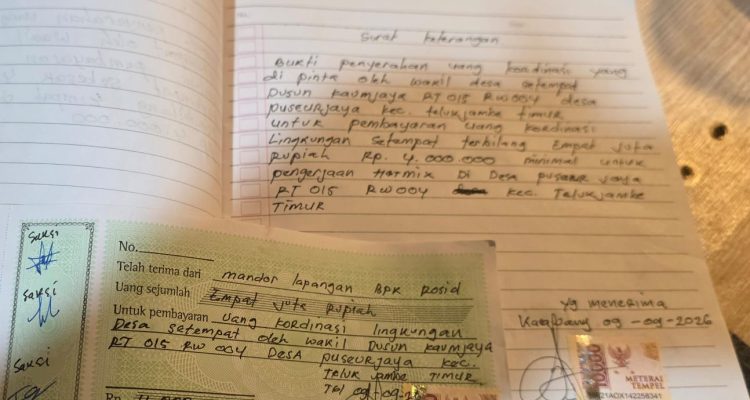 Surat keterangan
Bukti penyerahan uang kordinasi yang
di pinta oleh wakil desa setempat
Dusun kaumjaya RT 015 RW 004 desa
puseurjaya kec. telukjambe timur
untuk pembayaran uang kordinasi
Lingkungan setempat terbilang Empat juta
rupiah Rp. 4.000.000 minimal untuk
pengerjaan Hotmix Di Desa puseur jaya
RT 015 RW 004 kec. Telukjambe
Timur
yg menerima
09-09-2026
METERAI
TEMPEL
saksi
saksi
saksi
No.
Telah terima dari mandor lapangan BPK Rosid
Uang sejumlah Empat juta rupiah
Untuk pembayaran uang kordinasi lingkungan
Desa setempat oleh wakil Dusun kaumjaya
RT 015 RW 004 Desa puseurjaya kec.
Teluk jambe Timur
Rp